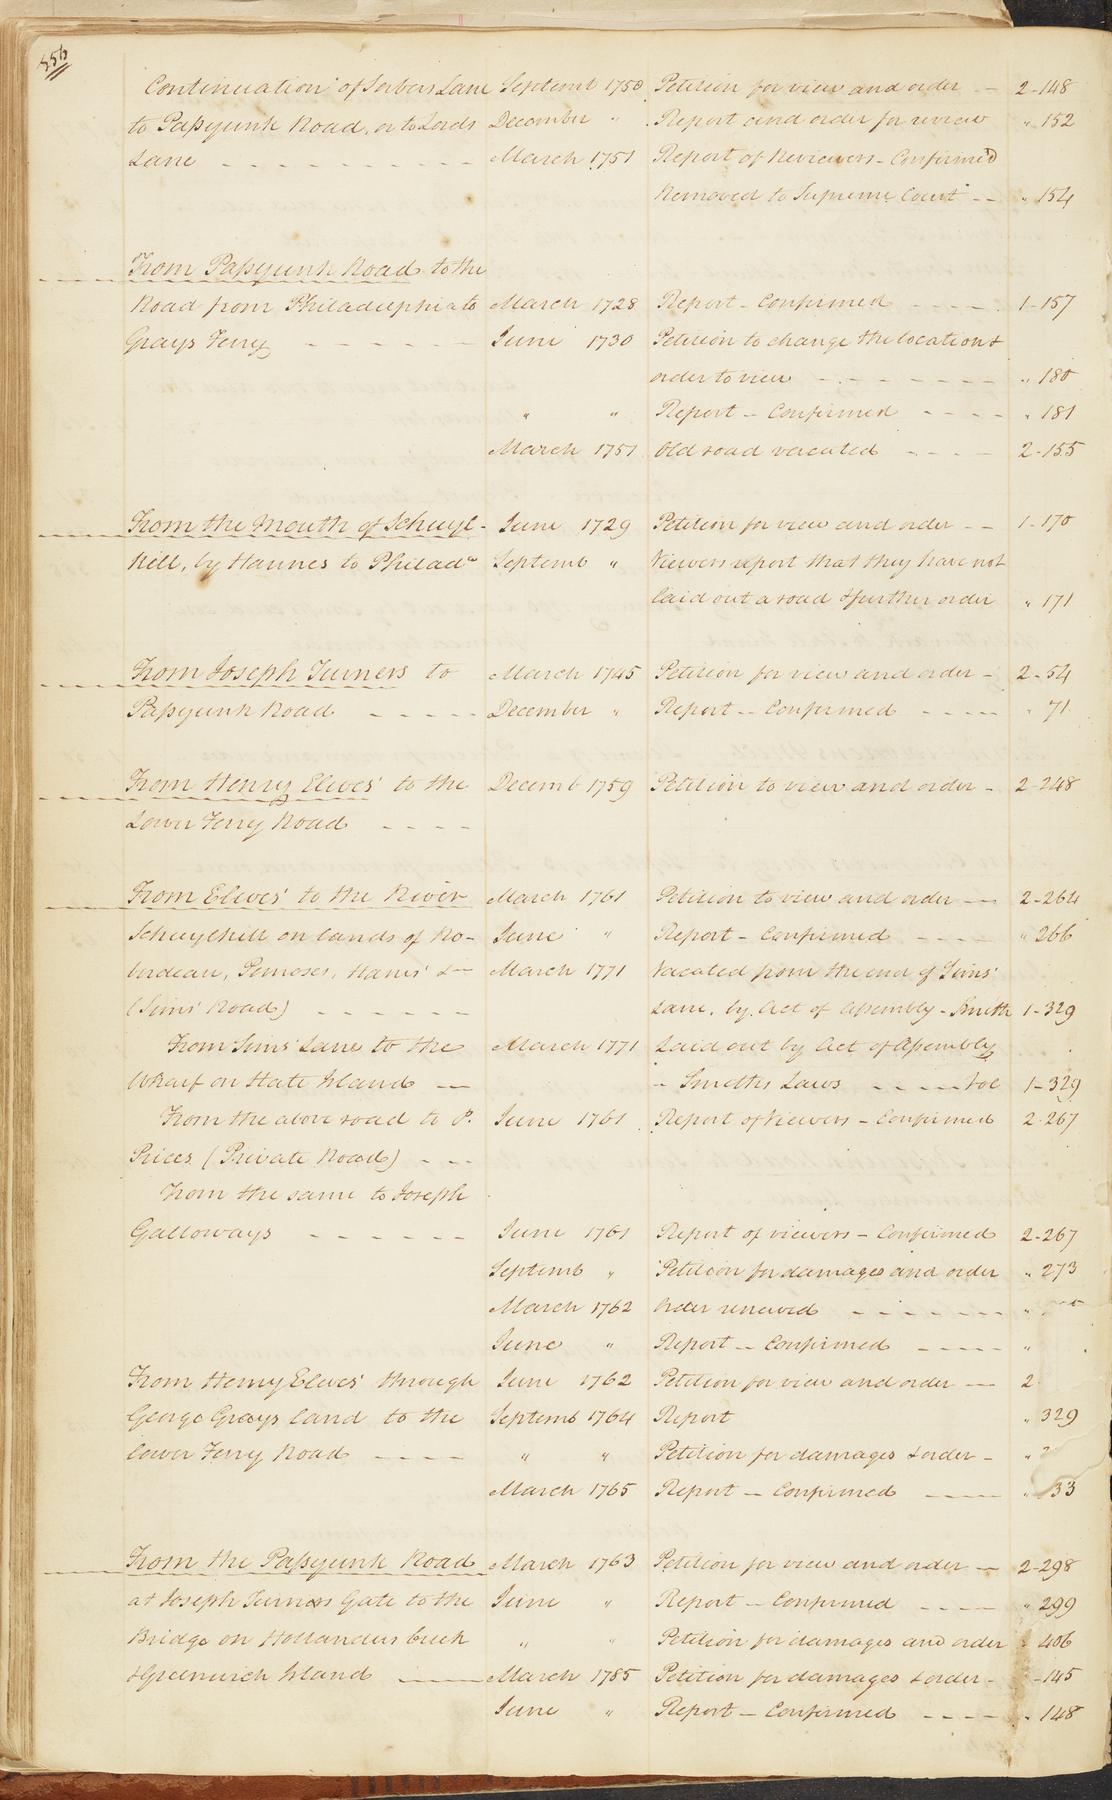 256
Continuation of Serbers Lane Septemb 1750 Petition for view and order -- 2-148
to Passyunk Road, or to Lords December " Report and order for review " 152
Lane - - - - - - - - - - March 1751 Report of Reviewers - Confirmed
Removed to Supreme Court -- " 154
From Passyunk Road to the
Road from Philadelphia to March 1728 Report - Confirmed - - - - 1-157
Grays Ferry - - - - - June 1730 Petition to change the location &
order to view - - - - - - - " 180
" " Report - Confirmed - - - - " 181
March 1751 Old road vacated - - - - 2-155
From the Mouth of Schuyl- June 1729 Petition for view and order -- 1-170
kill, by Hannes to Philada Septemb " Viewers report that they have not
laid out a road & further order " 171
From Joseph Turners to March 1745 Petition for view and order - 2-54
Passyunk Road - - - - - December " Report -- Confirmed - - - - " 71
From Henry Elves' to the Decemb 1759 Petition to view and order - 2-248
Lower Ferry Road - - - -
From Elves' to the River March 1761 Petition to view and order -- 2-264
Schuylkill on lands of Ro- June " Report - Confirmed - - - - " 266
berdeau, Penroses, Hanis' &c March 1771 Vacated from the end of Sims'
(Sims' Road) - - - - - - Lane, by Act of Assembly - Smith 1-329
From Sims' Lane to the March 1771 Laid out by Act of Assembly
Wharf on State Island -- - Smiths Laws - - - - Vol 1-329
From the above road to P. June 1761 Report of Viewers - Confirmed 2-267
Prices (Private Road) - - -
From the same to Joseph
Galloways - - - - - - June 1761 Report of viewers - Confirmed 2-267
Septemb " Petition for damages and order " 273
March 1762 Order renewed - - - - - - "
June " Report -- Confirmed - - - - "
From Henry Elves' through June 1762 Petition for view and order -- 2
George Grays land to the Septemb 1764 Report " 329
lower Ferry Road - - - - " " Petition for damages & order - "
March 1765 Report -- Confirmed ---- " 33
From the Passyunk Road March 1763 Petition for view and order -- 2-298
at Joseph Turners Gate to the June " Report -- Confirmed - - - - " 299
Bridge on Hollanders Creek " " Petition for damages and order " 406
& Greenwich Island ---- March 1785 Petition for damages & order - -145
June " Report -- Confirmed - - - - " 148